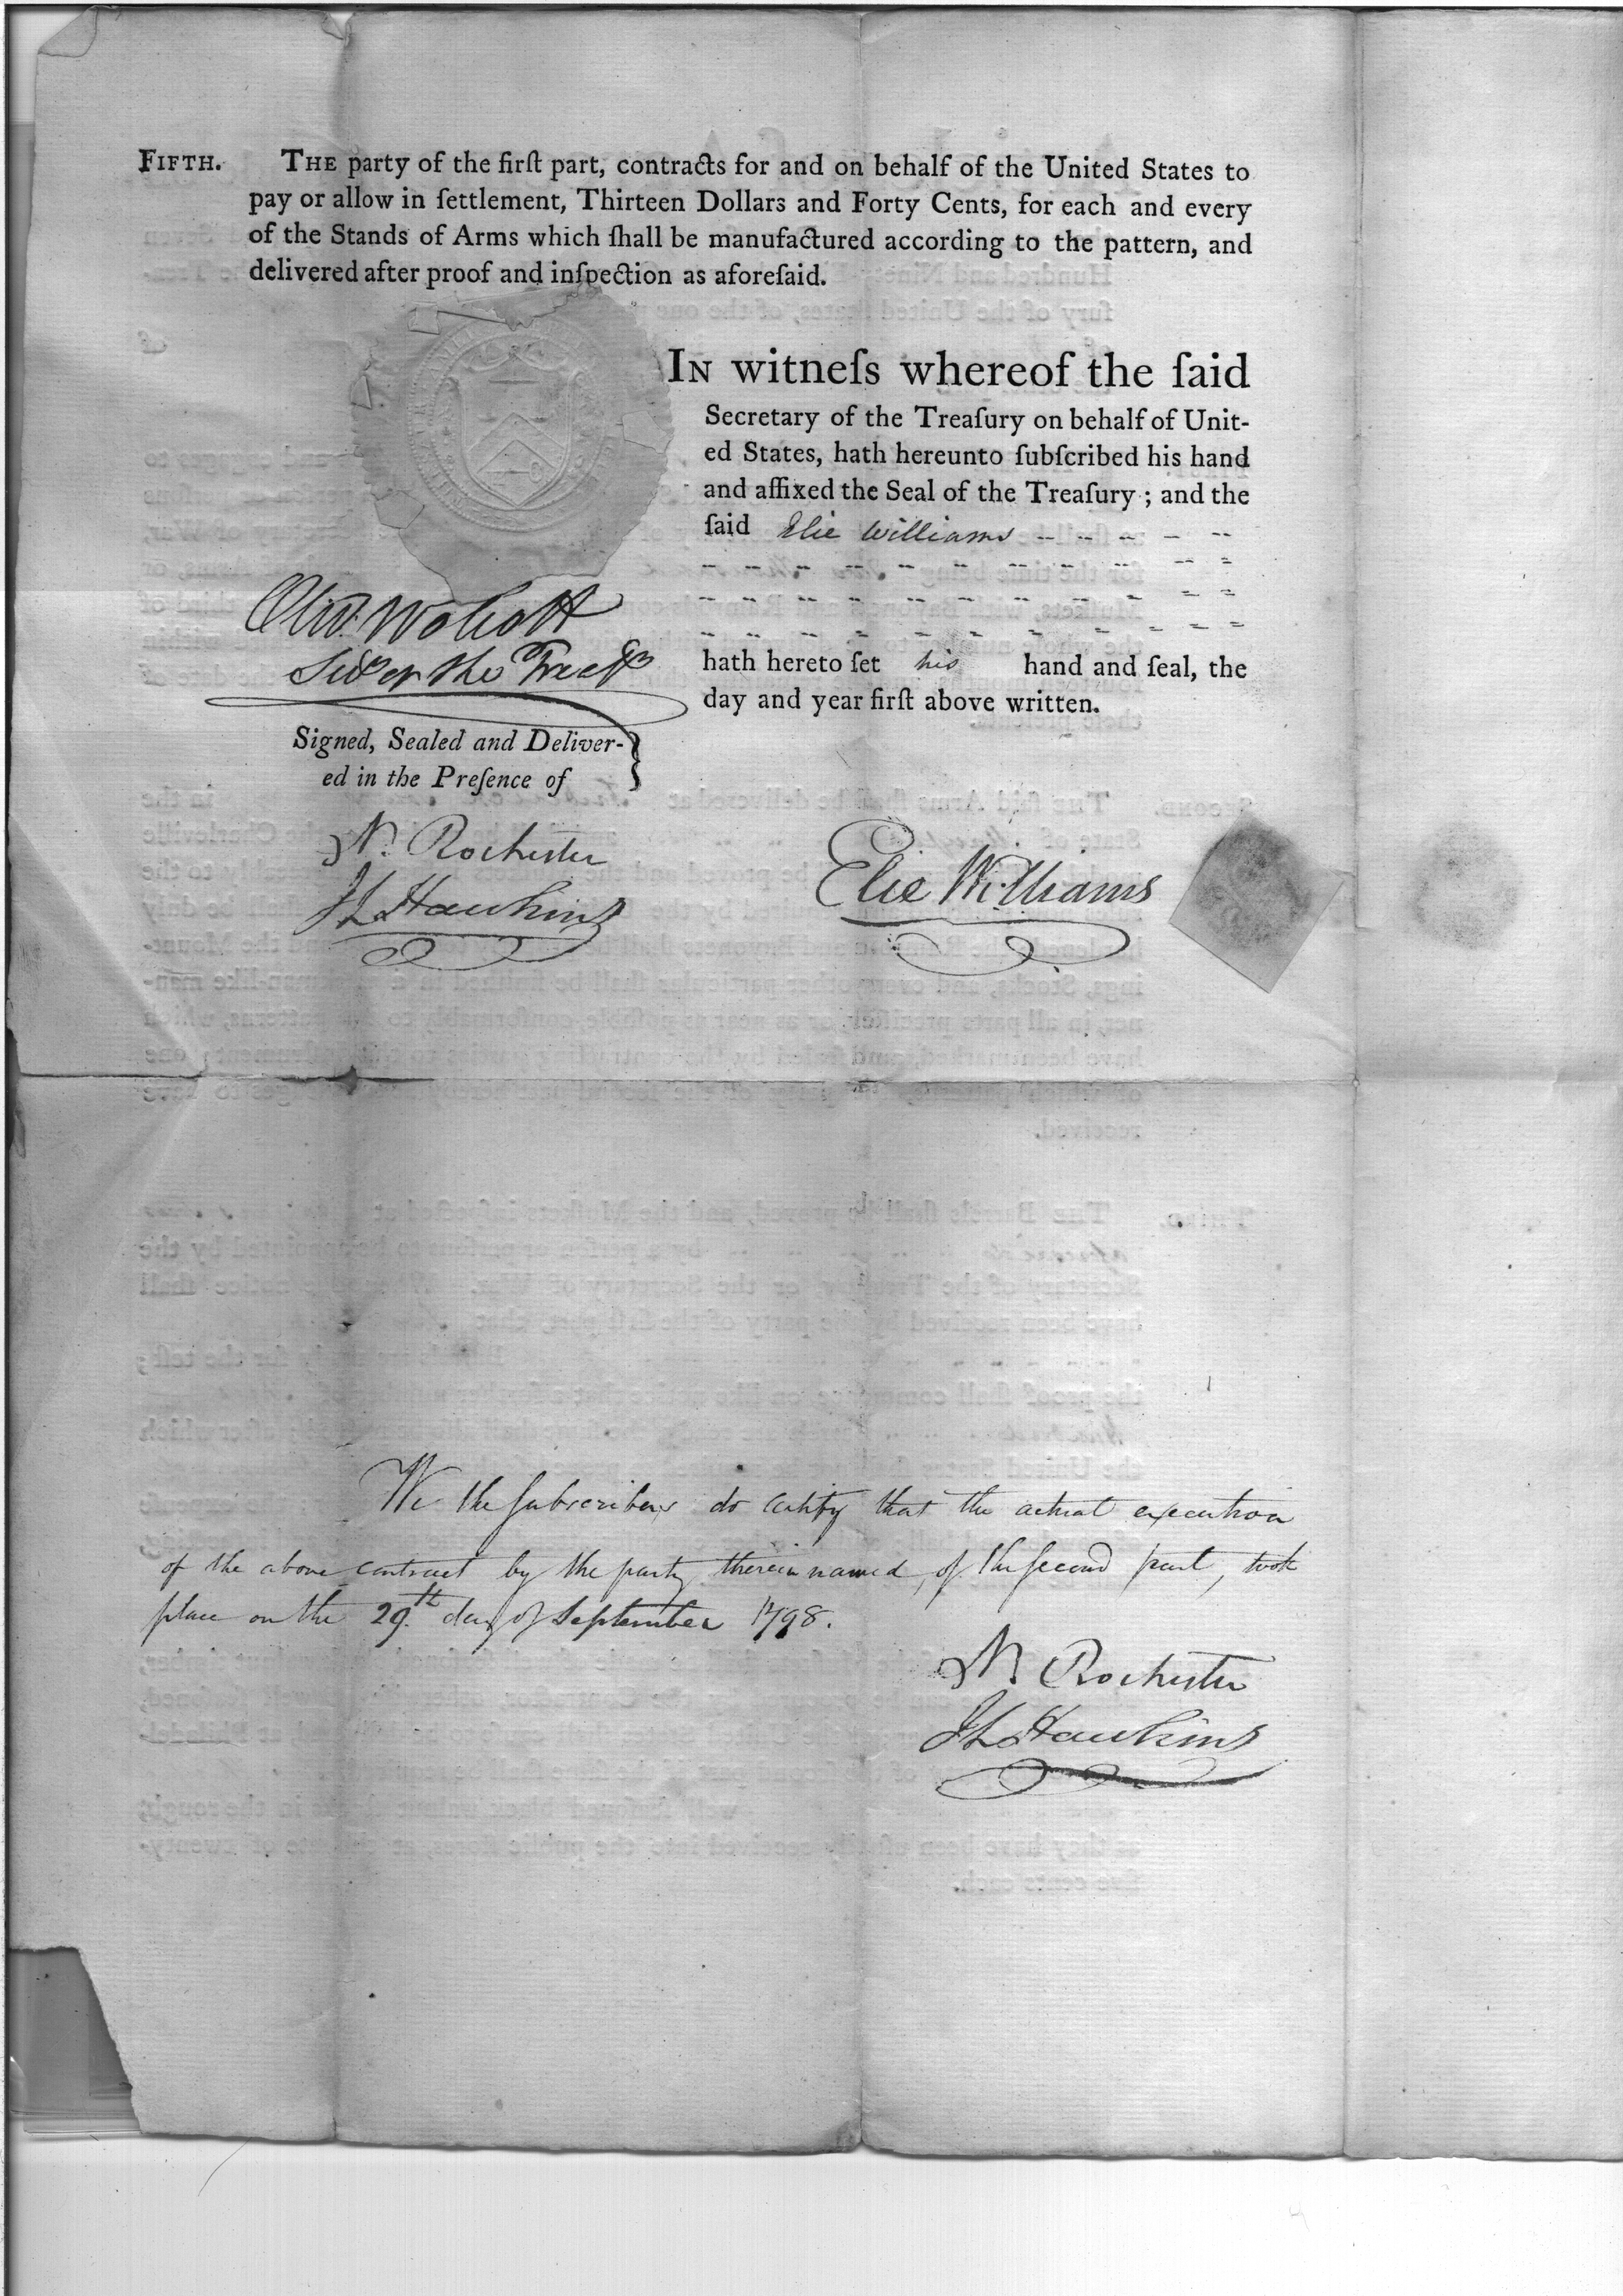 FIFTH. THE party of the firſt part, contracts for and on behalf of the United States to
pay or allow in ſettlement, Thirteen Dollars and Forty Cents, for each and every
of the Stands of Arms which ſhall be manufactured according to the pattern, and
delivered after proof and inſpection as aforeſaid.
IN witneſs whereof the ſaid
Secretary of the Treaſury on behalf of Unit-
ed States, hath hereunto ſubſcribed his hand
and affixed the Seal of the Treaſury; and the
ſaid Elie Williams
hath hereto ſet his hand and ſeal, the
day and year firſt above written.
Olivr. Wolcott
Secy of the Treasy
Signed, Sealed and Deliver-
ed in the Preſence of
N. Rochester
Elie Williams
JL Hawkins
We the ſubscribers do certify that the actual execution
of the above contract by the party therein named, of the ſecond part, took
place on the 29th day of September 1798.
N Rochester
JL Hawkins